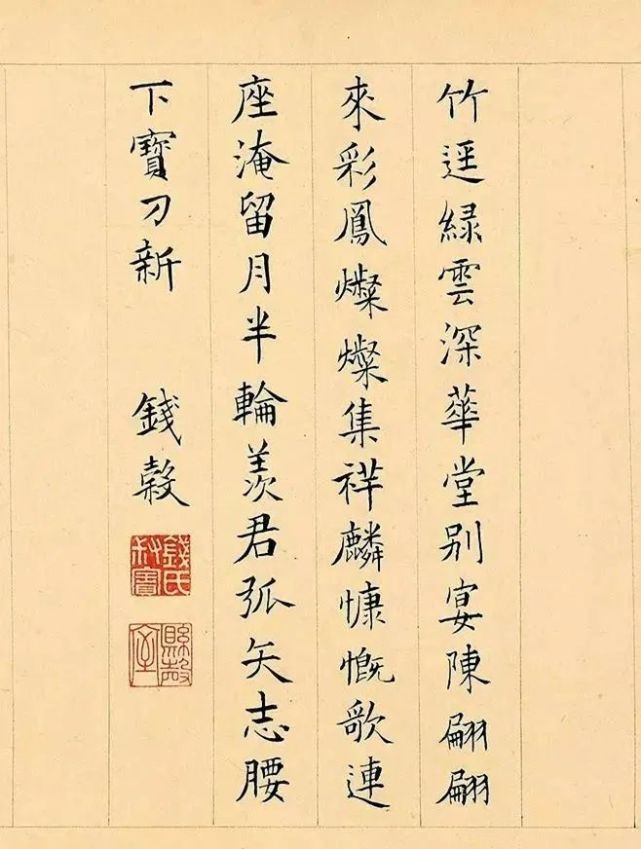 竹逕緑雲深華堂别宴陳翩翩
來彩鳳燦燦集祥麟慷慨歌連
座淹留月半輪羨君弧矢志腰
下寶刀新
錢榖
錢氏叔寶
懸磬室